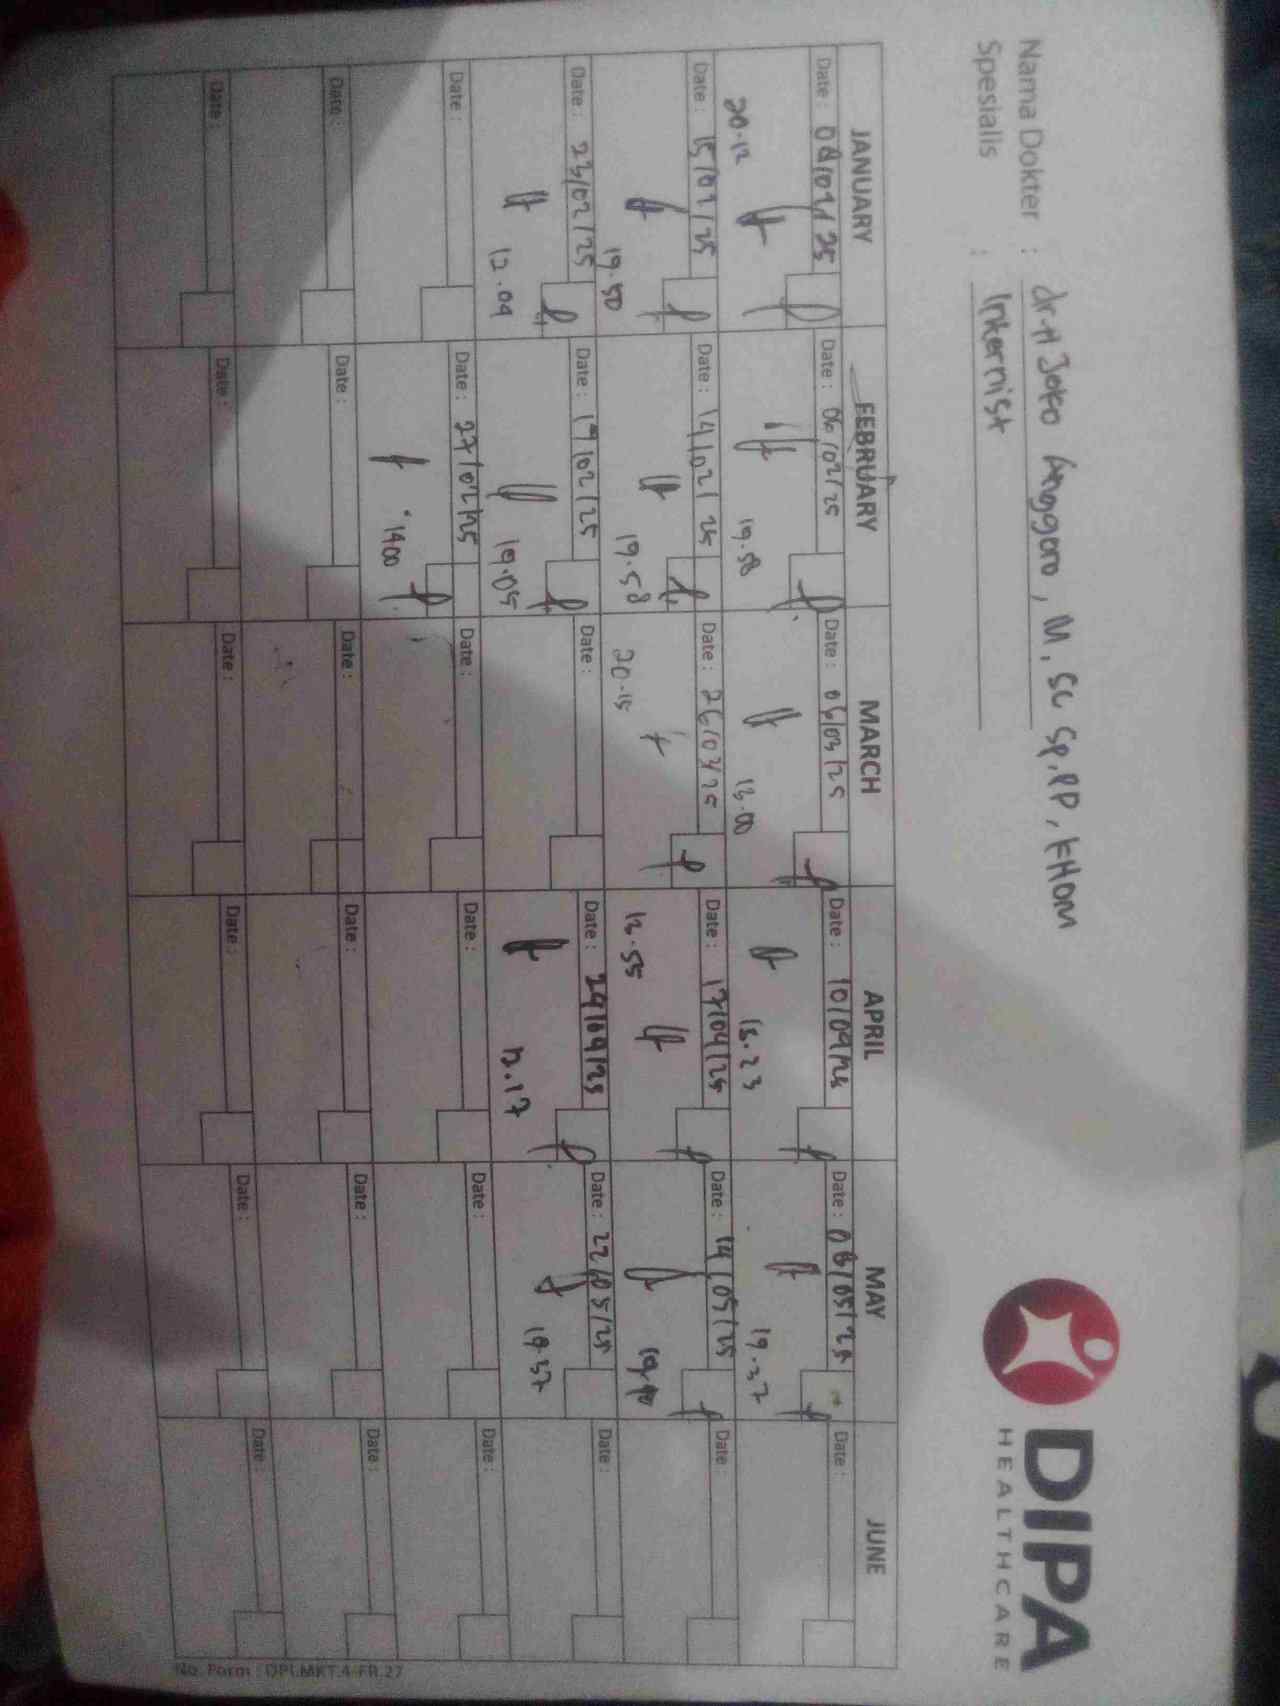 Nama Dokter : dr. H Joko Anggoro, M. Sc Sp. PD, KHOM
Spesialis : Internist
DIPA
HEALTHCARE
JANUARY FEBRUARY MARCH APRIL MAY JUNE
Date : 08/02/25 Date : 06/02/25 Date : 06/03/25 Date : 10/04/25 Date : 08/05/25 Date :
20.12 19.58 13.00 13.23 19.37
Date : 15/02/25 Date : 14/02/25 Date : 26/03/25 Date : 17/04/25 Date : 14/05/25 Date :
19.50 19.58 20.15 13.55 19.40
Date : 23/02/25 Date : 19/02/25 Date : Date : 24/04/25 Date : 22/05/25 Date :
12.04 19.05 12.17 19.37
Date : Date : 27/02/25 Date : Date : Date : Date :
1400
Date : Date : Date : Date : Date : Date :
Date : Date : Date : Date : Date : Date :
No. Form : DPI.MKT.4-FR.27